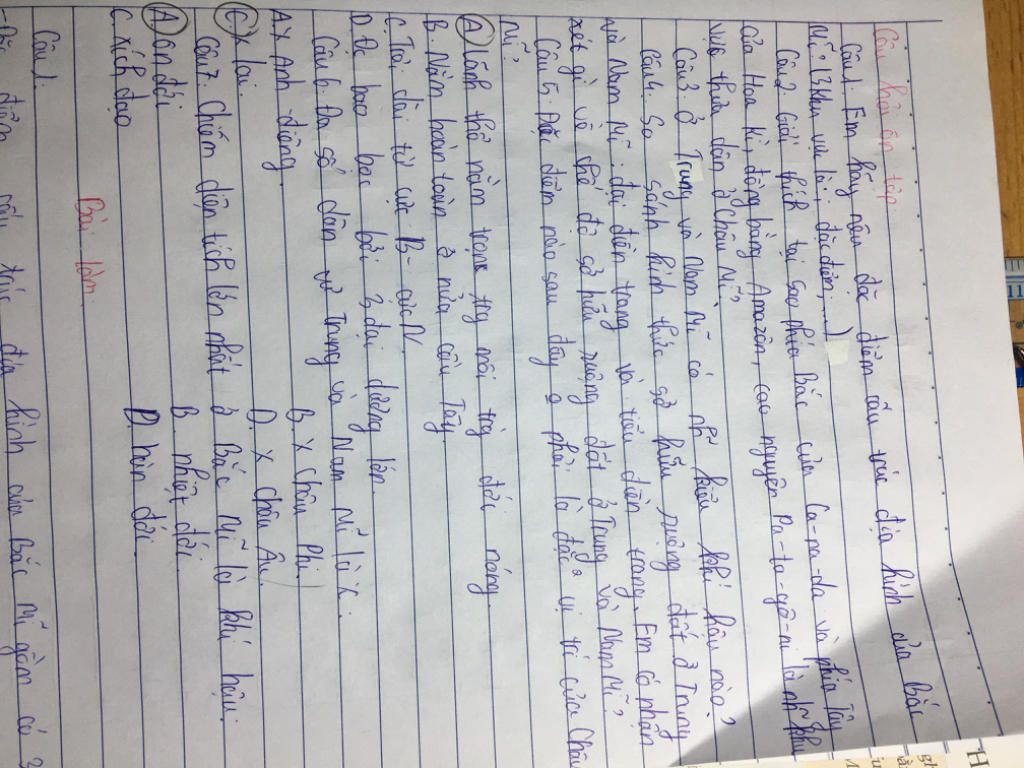 Câu hỏi ôn tập
Câu 1. Em hãy nêu đặc điểm cấu trúc địa hình của Bắc
Mĩ? (3 khu vực lại; đặc điểm;...)
Câu 2 Giải thích tại sao phía Bắc của Ca-na-da và phía Tây
của Hoa Kì, đồng bằng Amazôn, cao nguyên Pa-ta-gô-ni là nh~ khu
vực thưa dân ở Châu Mĩ?
Câu 3. Ở Trung và Nam Mĩ có nh~ kiểu khí hậu nào?
Câu 4. So sánh hình thức sở hữu ruộng đất ở Trung
và Nam Mĩ: đại điền trang và tiểu điền trang. Em có nhận
xét gì về chế độ sở hữu ruộng đất ở Trung và Nam Mĩ?
Câu 5. Đặc điểm nào sau đây ko phải là đặc vị trí của Châu
Mĩ?
A Lãnh thổ nằm trong trg môi trg đới nóng
B. Nằm hoàn toàn ở nửa cầu Tây
C. Trải dài từ cực B- cực N.
D. Đc bao bọc bởi 3 đại dương lớn.
Câu 6. Đa số dân cư Trung và Nam Mĩ là ng:
A. Ng Anh-điêng. B. Ng Châu Phi
C. Ng lai. D. Ng châu Âu.
Câu 7. Chiếm diện tích lớn nhất ở Bắc Mĩ là khí hậu:
A ôn đới B nhiệt đới
C xích đạo D. hàn đới
Bài làm
Câu 1.
đặc điểm cấu trúc địa hình của Bắc Mĩ gồm có 3